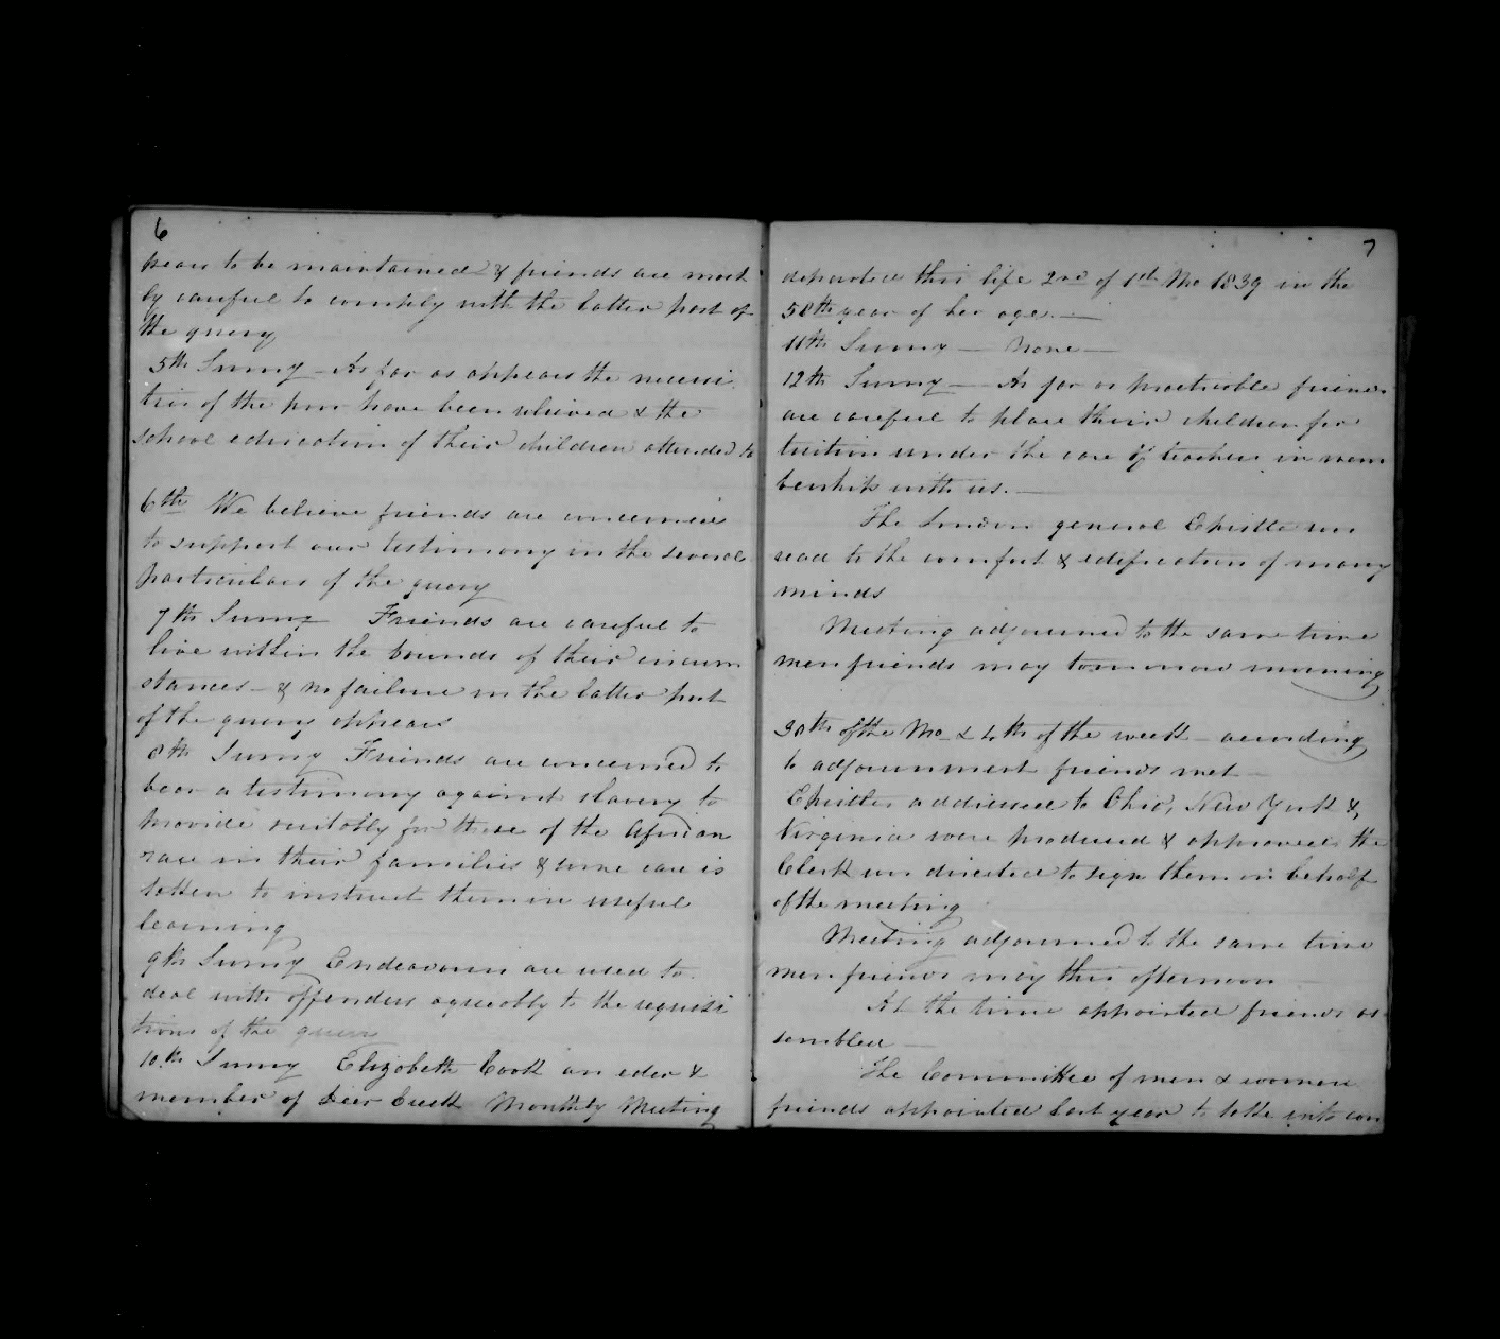 6
pear to be maintained & friends are most
ly careful to comply with the latter part of
the query
5th Summy - As far as appears the necessi
ties of the poor have been relieved & the
school education of their children attended to
6th We believe friends are concerned
to support our testimony in the several
particulars of the query
7th Summy Friends are careful to
live within the bounds of their circum
stances - & no failure in the latter part
of the query appears
8th Summy Friends are concerned to
bear a testimony against slavery to
provide suitably for those of the African
race in their families & some care is
taken to instruct them in useful
learning
9th Summy Endeavours are used to
deal with offenders agreeably to the requisi
tions of the query
10th Summy Elizabeth Cook an elder &
member of Deer Creek Monthly Meeting
7
departed this life 2nd of 1st Mo 1839 in the
58th year of her age. —
11th Summy — None —
12th Summy — As far as practicable friends
are careful to place their children for
tuition under the care of teachers in mem
bership with us. —
The London general Epistle was
read to the comfort & edification of many
minds
Meeting adjourned to the same time
men friends may tomorrow morning
30th of the Mo & 4th of the week - according
to adjournment friends met -
Epistles addressed to Ohio, New York &
Virginia were produced & approved, the
Clerk was directed to sign them on behalf
of the meeting
Meeting adjourned to the same time
men friends may this afternoon
At the time appointed friends as
sembled —
The Committee of men & women
friends appointed last year to take into con